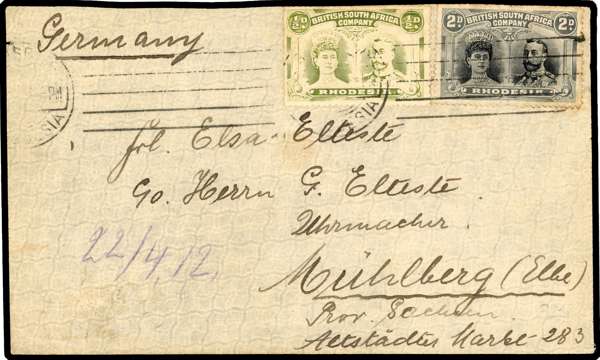 Germany
½D BRITISH SOUTH AFRICA ½D
COMPANY
RHODESIA
2D BRITISH SOUTH AFRICA 2D
COMPANY
RHODESIA
PM
SIA
ESIA
Frl. Elsa Elteste
Go. Herrn G. Elteste
Uhrmacher.
22/4/12.
Mühlberg (Elbe)
Prov. Sachsen.
Altstädter Markt 283